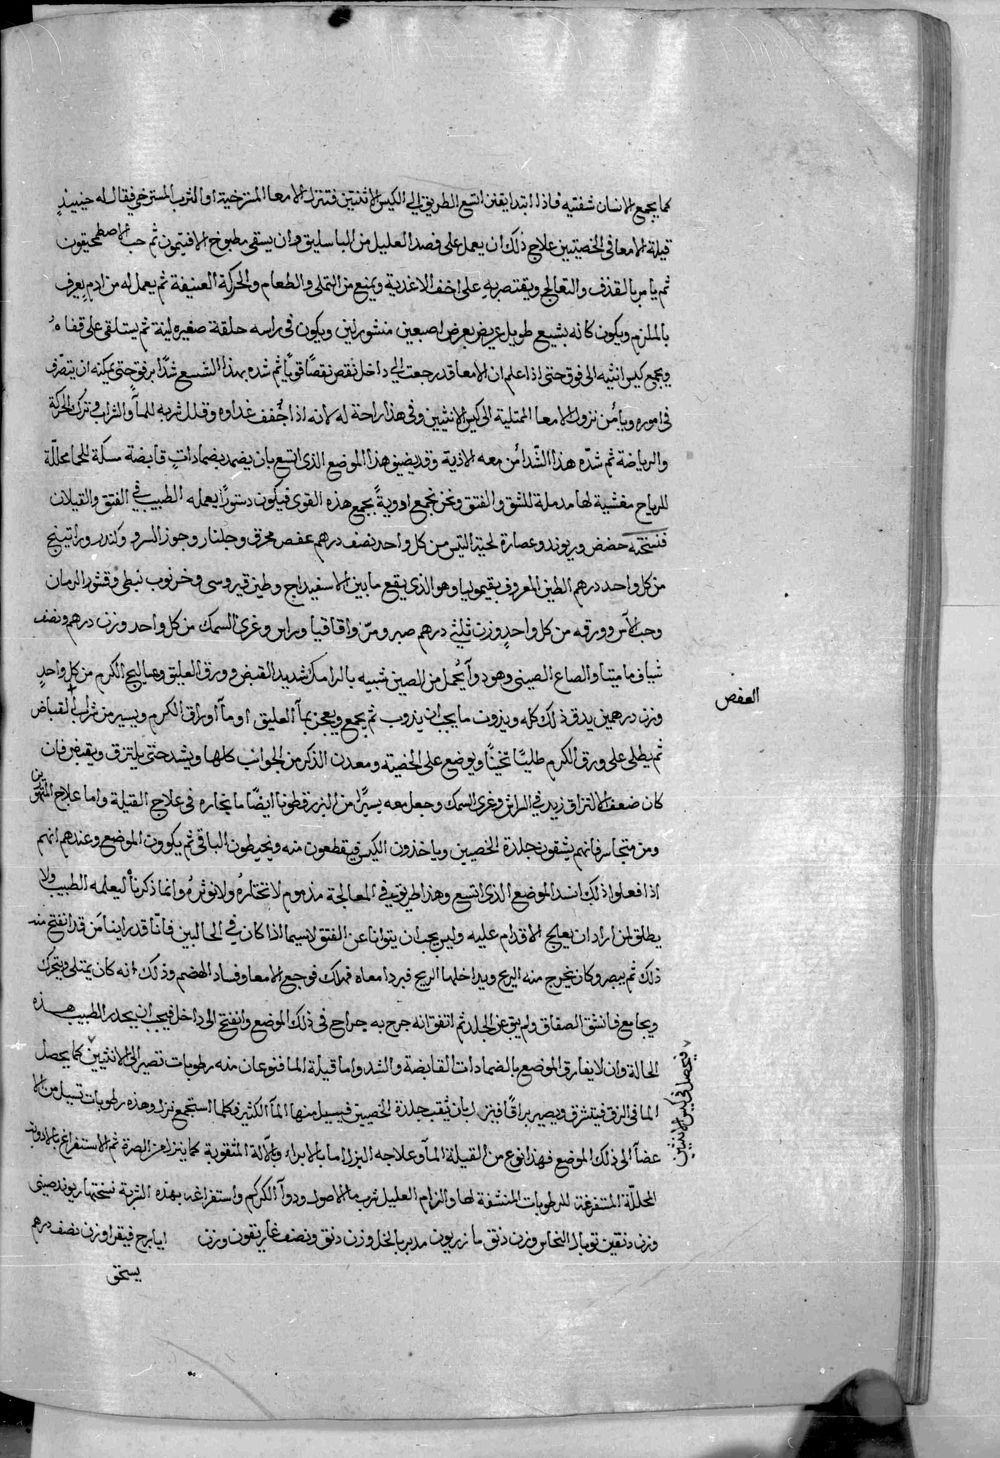 كما يجمع الانسان شفتيه فاذا ابتدا يفتن اتسع الطريق الي الكيس الانثيين فتنزل الامعا المسترخية او الثرب المسترخي فيقال له حينيذٍ
قيلة الامعا في الخصيتين علاج ذلك ان يعمل على فصد العليل من الباسليق وان يسقى مطبوخ الافتيمون ثم حب الاصطمحيقون
ثم يامر بالقذف والتعالج ويقتصر به على اخف الاغدية ويمنع من التملى والطعام والحركة العنيفة ثم يعمل له من ادم يعرف
بالملزم ويكون كانه بشيع طويل عريض بعرض اصبعين منشورتين ويكون في راسه حلقة صغيره لينة ثم يستلقى على قفاه
ويجمع كيس انثييه الى فوق حتى اذا علم ان الامعا قد رجعت الي داخل نقص نقصًا قويًا ثم شده بهذا الشسع شدًا برفق حتى يمكنه ان يتصرف
في اموره ويأمن نزول الامعا الممتلية الى كيس الانثيين وفي هذا راحة له لانه اذا جفف غداوه وقلل شربه للمآ والشراب وترك الحركة
والرياضة ثم شدّه هذا الشد امن معه الاذية وقد يضيق هذا الموضع الذى اتسع بان يضمد بضمادات قابضة مسكة للحما محللة
للرياح مغشية لها مدملة للشق والفتق ونحن نجمع ادوية تجمع هذه القوى فيكون دستورًا يعمله الطبيب في الفتق والقيلان
فنسخته حضض وريوند وعصارة لحية التيس من كل واحد نصف درهم عفص محرق وجلنار وجوز السرو وكندر وراتينج
من كل واحد درهم الطين المعروف بقيموليا وهو الذي يقع ما بين الاسفيداج وطين قبروسى وخرنوب نبطى وقشور الرمان
وحب الآس وورقه من كل واحدٍ وزن ثلثي درهم صبر ومرّ واقاقيا وراس وغرى السمك من كل واحد وزن درهم ونصف
شياف ماميثا والصاع الصينى وهو دوآ يحمل من الصين شبيه بالرامك شديد القبض وورق العليق وعساليج الكرم من كل واحدٍ
وزن درهمين يدق ذلك كله ويذوب ما يجب ان يذوب ثم يجمع ويعجن بمآ العليق او مآ اوراق الكرم ويسير من شراب القباض
ثم يطلى على ورق الكرم طليًا ثخينًا ويوضع على الخصية ومعدن الذكر من الجوانب كلها ويشد حتى يلتزق ويقبض فان
كان ضعف الالتزاق زيد في الراس وغرى السمك وجعل معه يسيرًا من البزر قطونا ايضًا ما يختاره في علاج القيلة واما علاج المتهورين
ومن متجاسر فانهم يشقون جلدة الخصيين وياخذون الكيس فيقطعون منه ويخيطون الباقى ثم يكوون الموضع وعندهم انهم
اذا فعلوا ذلك انسد الموضع الذى اتسع وهذا طريق في المعالجة مذموم لا نختاره ولا نوثره وانما ذكرناه ليعلمه الطبيب ولا
يطلق لمن اراد ان يعالج الاقدام عليه وليس يجب ان يتوانا عن الفتق لاسيما اذا كان في الحالبين فانّا قد راينا من قد انفتح منه
ذلك ثم يبصر وكان يخرج منه الريح ويداخلها الريح فبرد امعاه فهلك فوجع الامعا وفساد الهضم وذلك انه كان يمتلى ويتحرك
ويجامع فانشق الصفاق ولم يبق غير الجلد ثم اتفق انه جرح به جراح في ذلك الموضع وانفتح الى داخل فيجب ان يحذر الطبيب هذه
الحالة وان لا يفارق الموضع بالضمادات القابضة والشد واما قيلة الما فنوعان منه رطوبات تصير الى الانثيين كما يحصل
الما في الزق فيتشرق ويصير براقًا فينزل بان يثقب جلدة الخصيين فيسيل منها المآ الكثير فكلما استجمع نزل وهذه رطوبات تسيل من الا
عضآ الى ذلك الموضع فهذا نوع من القيلة المآ وعلاجه البزل اما بالابرا وبالآلة المثقوبة كما ينزل من الصرة ثم الاستفراغ بالادوية
المحللّة المستفرغة للرطوبات المنشفة لها والزام العليل شرب ما الاصول ودوآ الكركم واستفراغه بهذه الشربة نسختها ريوند صينى
وزن دنقين توبال النحاس وزن دنق مازريون مدبر بالخل وزن دنق ونصف غاريقون وزن ايارج فيقرا وزن نصف درهم
يسحق
العفص
فيحصل في كيس الانثيين